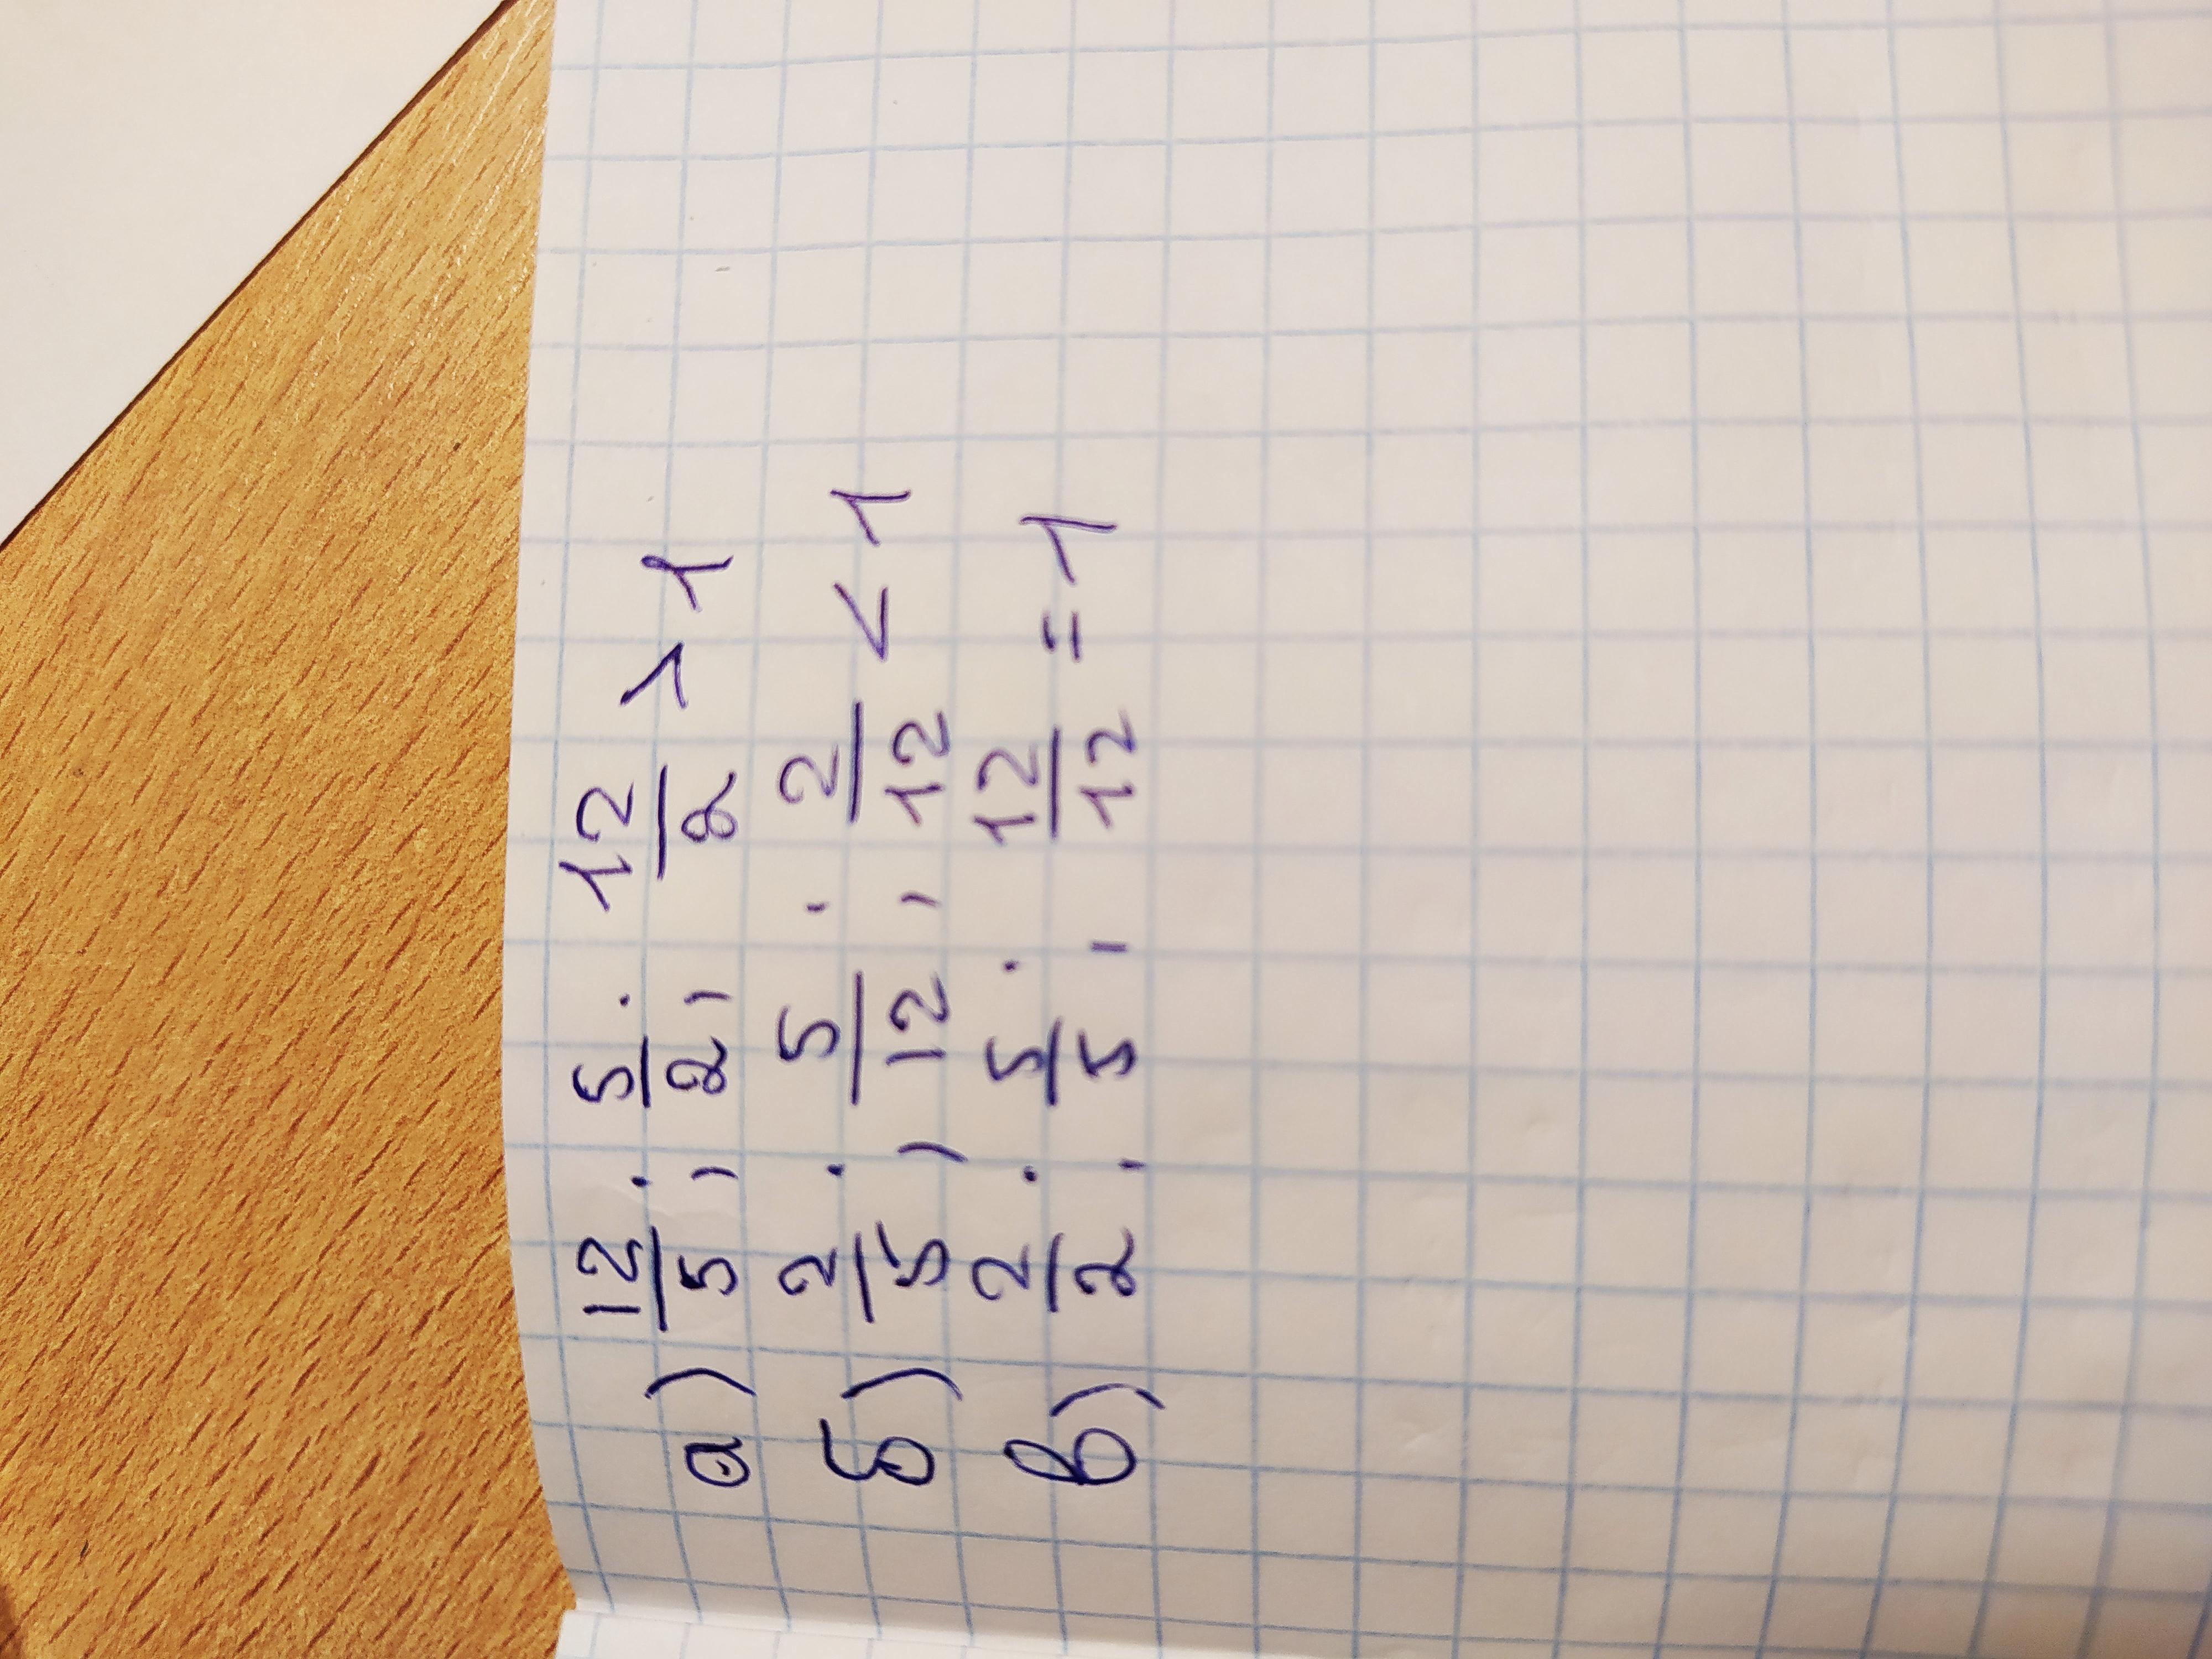 а) 12/5; 5/2; 12/2 > 1
б) 2/5; 5/12; 2/12 < 1
в) 2/2; 5/5; 12/12 = 1